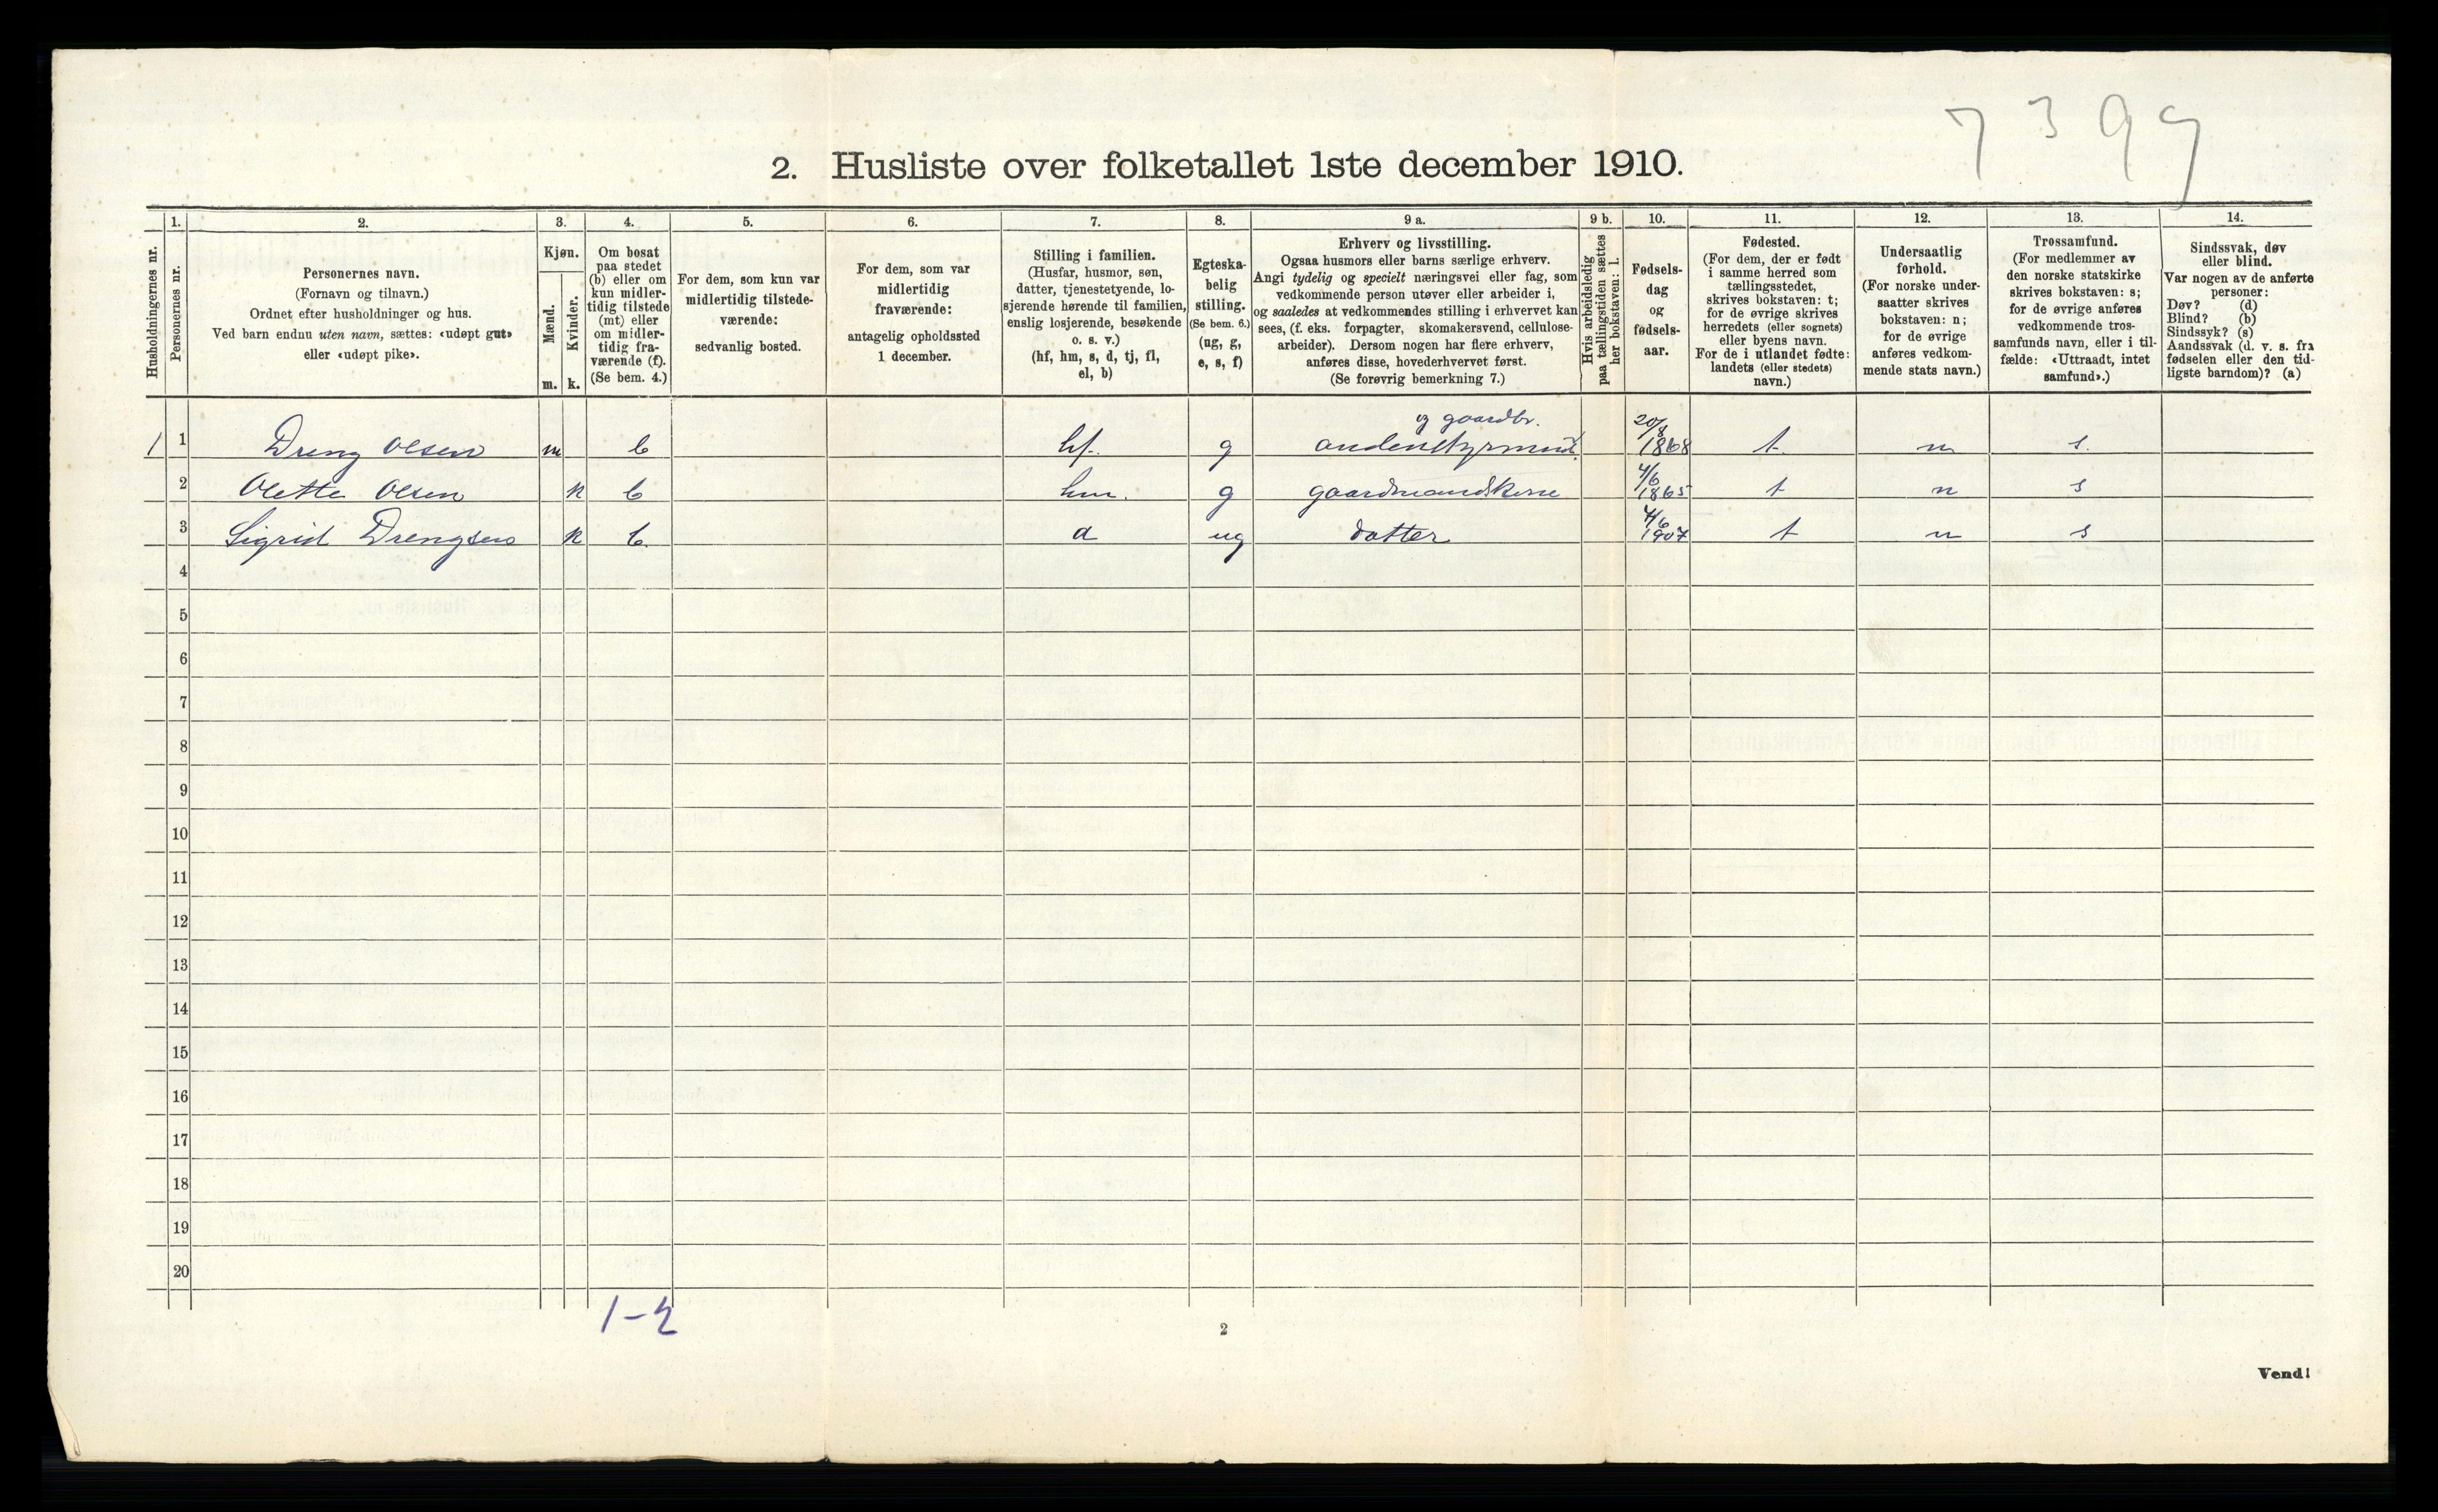 7399
2. Husliste over folketallet 1ste december 1910.
Husholdningernes nr.
1.
Personernes nr.
2.
Personernes navn.
(Fornavn og tilnavn.)
Ordnet efter husholdninger og hus.
Ved barn endnu uten navn, sættes: «udøpt gut»
eller «udøpt pike».
3.
Kjøn.
Mænd.
m.
Kvinder.
k.
4.
Om bosat
paa stedet
(b) eller om
kun midler-
tidig tilstede
(mt) eller
om midler-
tidig fra-
værende (f).
(Se bem. 4.)
5.
For dem, som kun var
midlertidig tilstede-
værende:
sedvanlig bosted.
6.
For dem, som var
midlertidig
fraværende:
antagelig opholdssted
1 december.
7.
Stilling i familien.
(Husfar, husmor, søn,
datter, tjenestetyende, lo-
sjerende hørende til familien,
enslig losjerende, besøkende
o. s. v.)
(hf, hm, s, d, tj, fl,
el, b)
8.
Egteska-
belig
stilling.
(Se bem. 6.)
(ug, g,
e, s, f)
9 a.
Erhverv og livsstilling.
Ogsaa husmors eller barns særlige erhverv.
Angi tydelig og specielt næringsvei eller fag, som
vedkommende person utøver eller arbeider i,
og saaledes at vedkommendes stilling i erhvervet kan
sees, (f. eks. forpagter, skomakersvend, cellulose-
arbeider). Dersom nogen har flere erhverv,
anføres disse, hovederhvervet først.
(Se forøvrig bemerkning 7.)
9 b.
Hvis arbeidsledig
paa tællingstiden sættes
her bokstaven: l.
10.
Fødsels-
dag
og
fødsels-
aar.
11.
Fødested.
(For dem, der er født
i samme herred som
tællingsstedet,
skrives bokstaven: t;
for de øvrige skrives
herredets (eller sognets)
eller byens navn.
For de i utlandet fødte:
landets (eller stedets)
navn.)
12.
Undersaatlig
forhold.
(For norske under-
saatter skrives
bokstaven: n;
for de øvrige
anføres vedkom-
mende stats navn.)
13.
Trossamfund.
(For medlemmer av
den norske statskirke
skrives bokstaven: s;
for de øvrige anføres
vedkommende tros-
samfunds navn, eller i til-
fælde: «Uttraadt, intet
samfund».)
14.
Sindssvak, døv
eller blind.
Var nogen av de anførte
personer:
Døv? (d)
Blind? (b)
Sindssyk? (s)
Aandssvak (d. v. s. fra
fødselen eller den tid-
ligste barndom)? (a)
og gaardbr. 20/8
1 1 Dreng Olsen m b hf. g andenstyrmand 1868 t n s.
2 Olette Olsen k b hm. g gaardmandskone 4/6 1865 t n s
3 Sigrid Drengsen k b. d ug datter 4/6 1907 t n s
4
5
6
7
8
9
10
11
12
13
14
15
16
17
18
19
20
1-2
2
Vend!